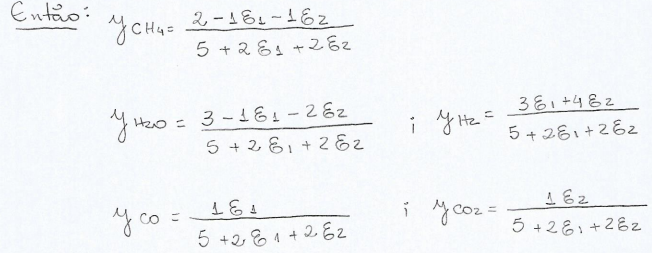 Então: y CH4 = (2 - 1ε1 - 1ε2) / (5 + 2ε1 + 2ε2)
y H2O = (3 - 1ε1 - 2ε2) / (5 + 2ε1 + 2ε2) ; y H2 = (3ε1 + 4ε2) / (5 + 2ε1 + 2ε2)
y CO = (1ε1) / (5 + 2ε1 + 2ε2) ; y CO2 = (1ε2) / (5 + 2ε1 + 2ε2)